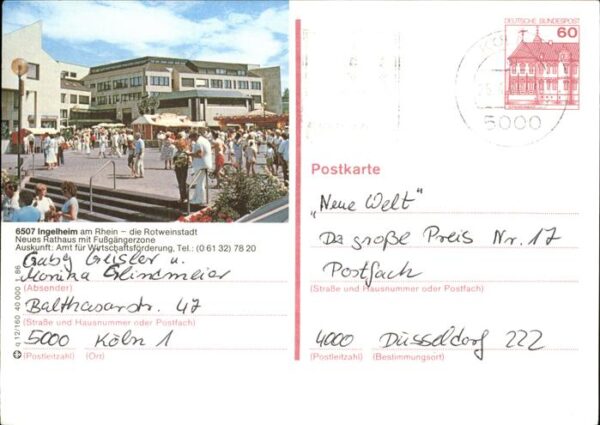 DEUTSCHE BUNDESPOST
60
5000
6507 Ingelheim am Rhein – die Rotweinstadt
Neues Rathaus mit Fußgängerzone
Auskunft: Amt für Wirtschaftsförderung, Tel.: (0 61 32) 78 20
Gaby Geisler u.
Monika
(Absender)
Balthasarstr. 47
(Straße und Hausnummer oder Postfach)
5000 Köln 1
(Postleitzahl) (Ort)
q 12/160 40 000 1.86
Postkarte
„Neue Welt"
Da große Preis Nr. 17
Postfach
(Straße und Hausnummer oder Postfach)
4000 Düsseldorf 222
(Postleitzahl) (Bestimmungsort)